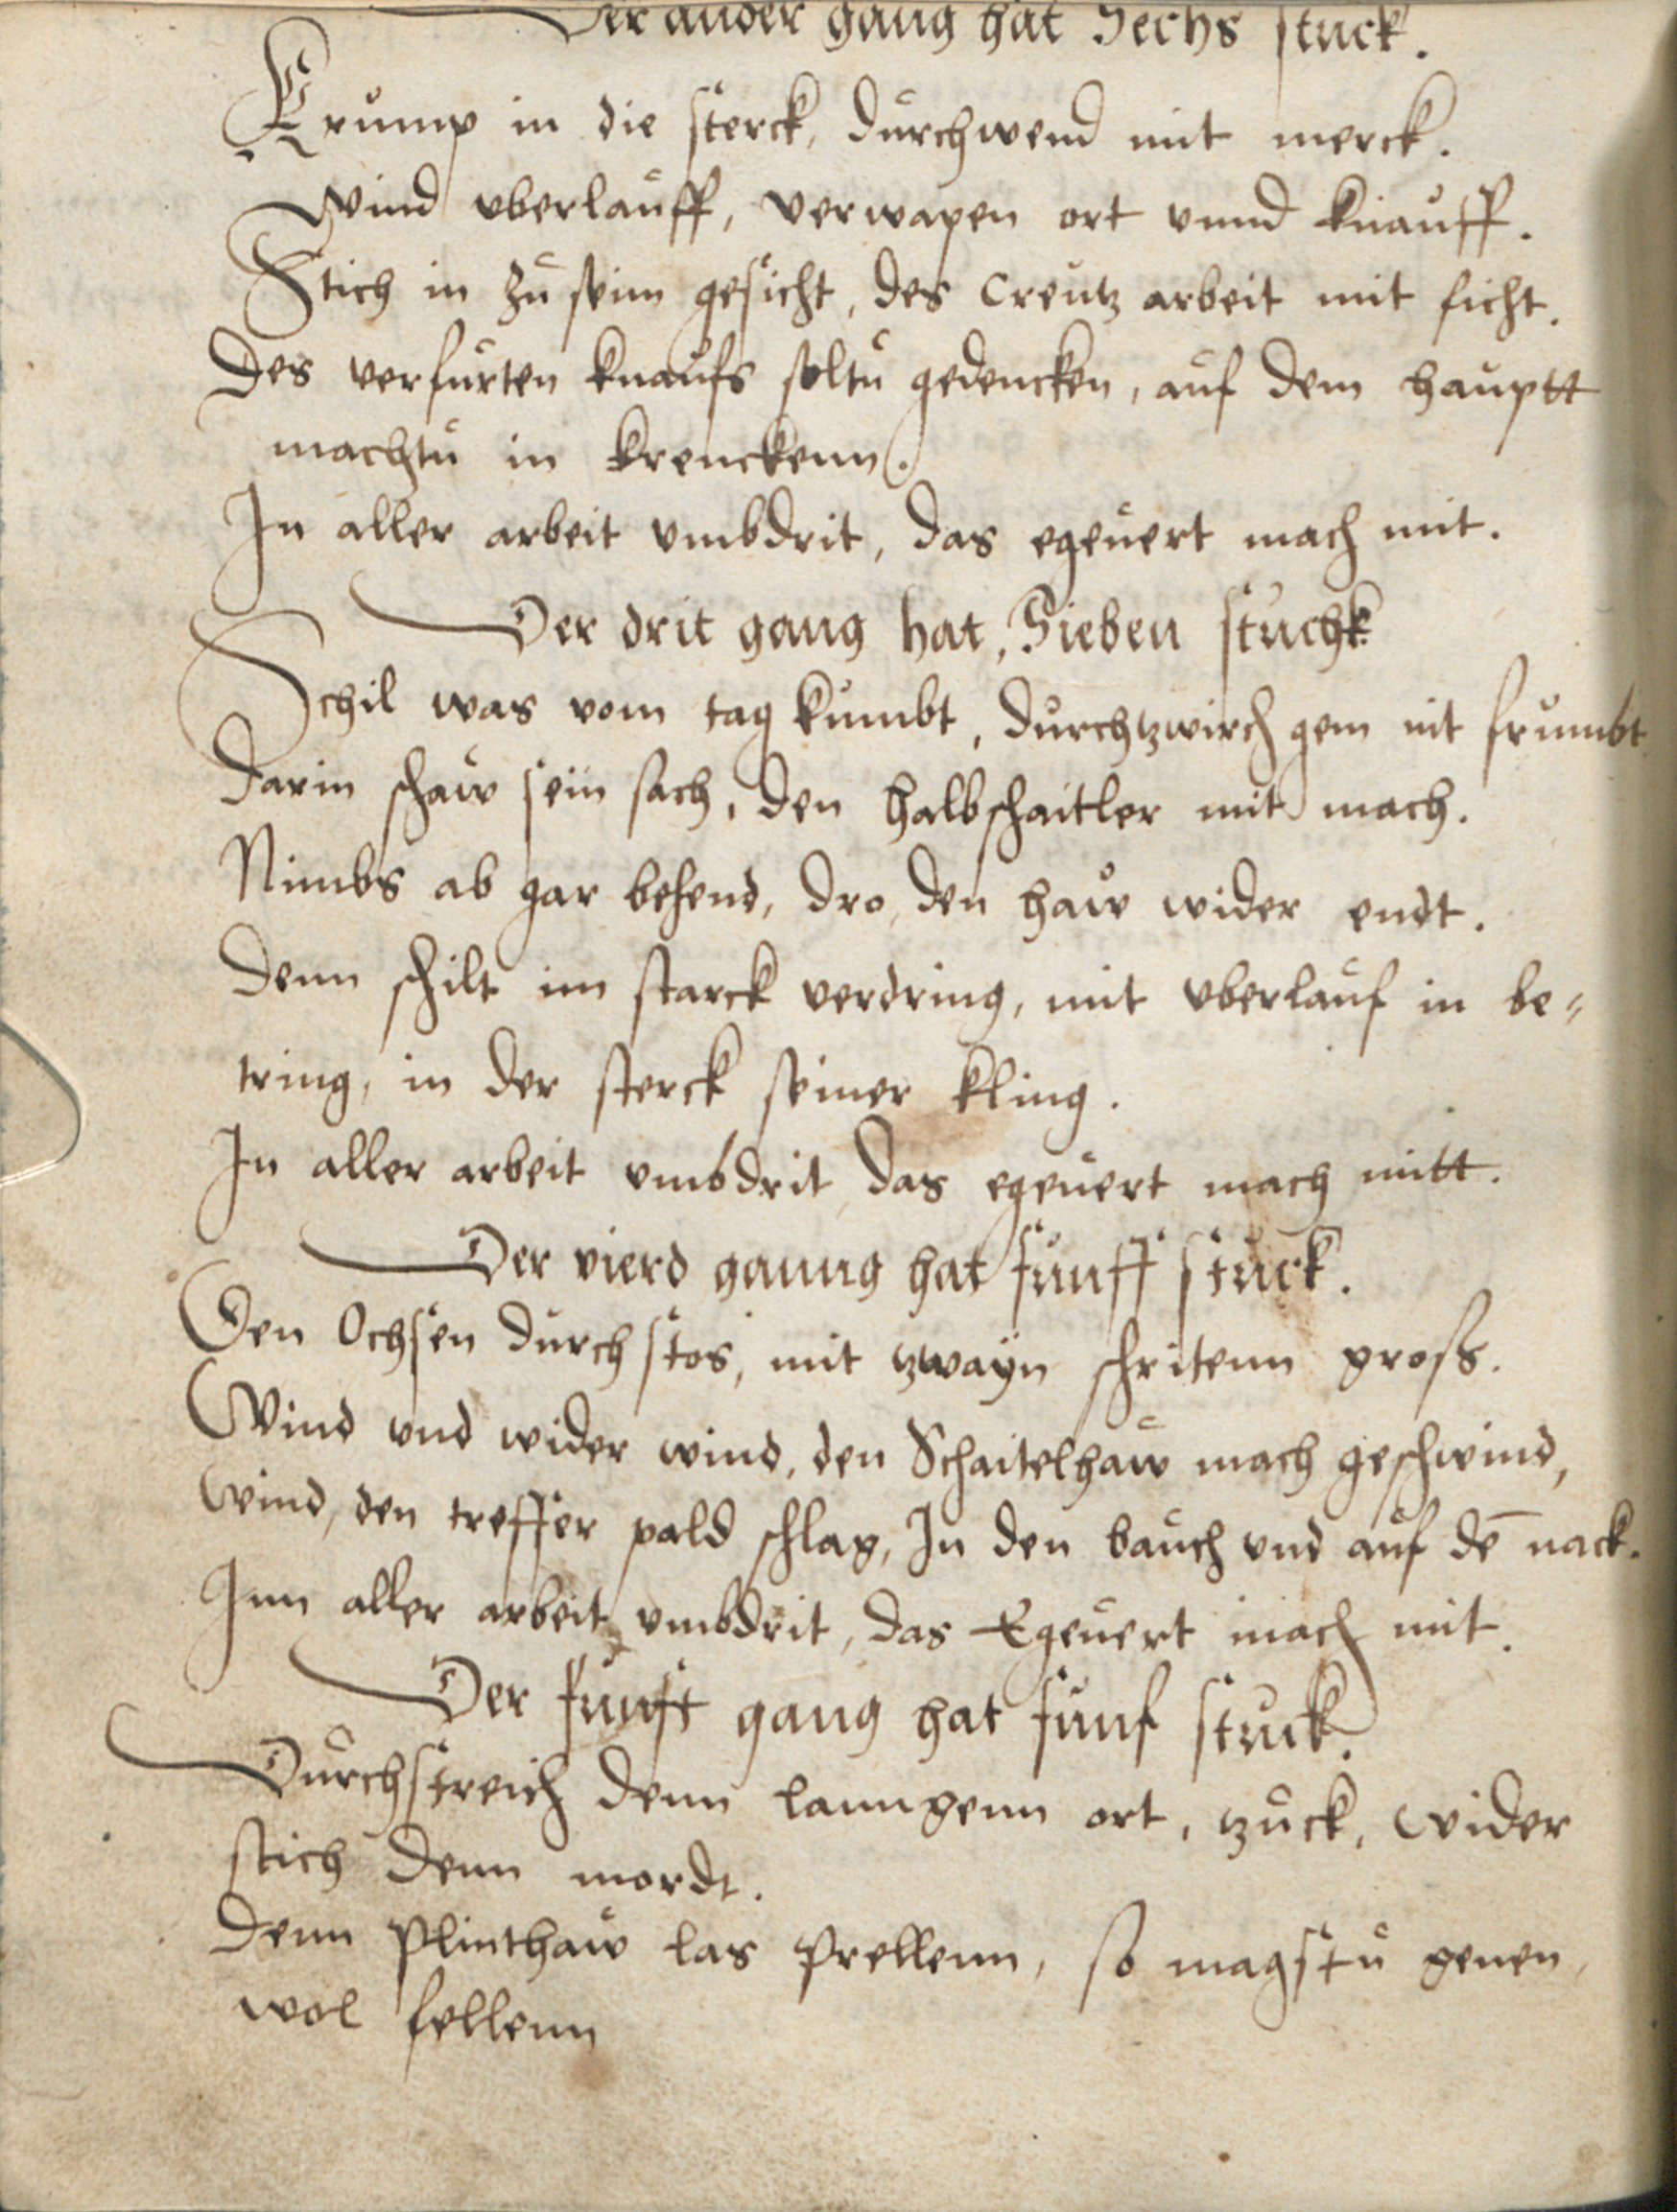 Der ander gang hat Sechs stuck.
Crump in die sterck, durchwend mit merck.
Wind vberlauff, verwapen ort vnnd knauff.
Stich in zu seim gesicht, des Creutz arbeit mit ficht.
Des verfurten knaufs soltu gedencken, auf dem hauptt
machtu in krenckenn.
In aller arbeit vmbdrit, das egeuert mach mit.
Der drit gang hat, Sieben stuchk
Schil was vom tag kumbt, durchtzwirch gem nit frumbt
Darin schaw sein sach, den halbschaitler mit mach.
Nimbs ab gar behend, dro, den haw wider endt.
Denn schilt im starck verdring, mit vberlauf in be-
tring, in der sterck seiner kling.
In aller arbeit vmbdrit, das egeuert mach mitt.
Der vierd ganng hat funff stuck.
Den Ochsen durchstos, mit tzwayn schritenn gross.
Wind vnd wider wind, den Schaitelhaw mach geschwind,
Wind, den treffer pald schlag, In den bauch vnd auf dē nack.
Inn aller arbeit vmbdrit, das Egeuert mach mit.
Der funft gang hat funf stuck.
Durchstreich denn lanngenn ort, tzuck, wider
stich denn mordt.
Denn Plinthaw las Prellenn, so magstu genen,
wol fellenn